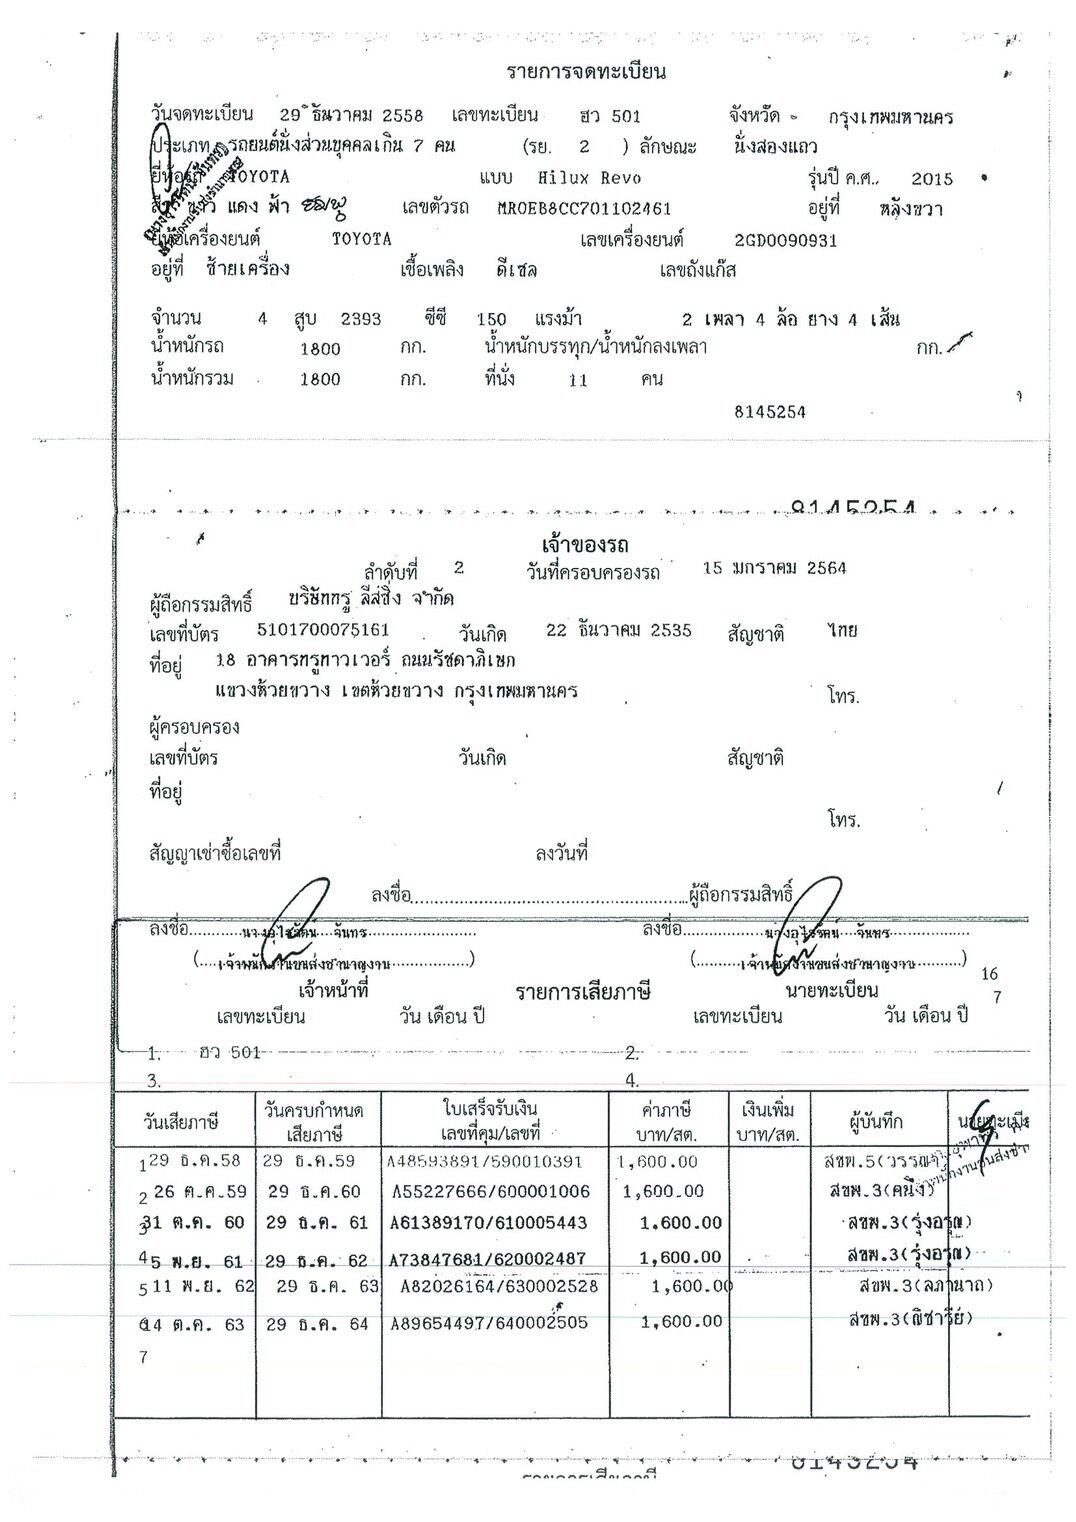 รายการจดทะเบียน
วันจดทะเบียน 29 ธันวาคม 2558 เลขทะเบียน ฮว 501 จังหวัด กรุงเทพมหานคร
ประเภท รถยนต์นั่งส่วนบุคคลเกิน 7 คน (รย. 2 ) ลักษณะ นั่งสองแถว
ยี่ห้อรถ TOYOTA แบบ Hilux Revo รุ่นปี ค.ศ. 2015
สี ขาว แดง ฟ้า เลขตัวรถ MR0EB8CC701102461 อยู่ที่ หลังขวา
ยี่ห้อเครื่องยนต์ TOYOTA เลขเครื่องยนต์ 2GD0090931
อยู่ที่ ซ้ายเครื่อง เชื้อเพลิง ดีเซล เลขถังแก๊ส
จำนวน 4 สูบ 2393 ซีซี 150 แรงม้า 2 เพลา 4 ล้อ ยาง 4 เส้น
น้ำหนักรถ 1800 กก. น้ำหนักบรรทุก/น้ำหนักลงเพลา กก.
น้ำหนักรวม 1800 กก. ที่นั่ง 11 คน
8145254
8145254
เจ้าของรถ
ลำดับที่ 2 วันที่ครอบครองรถ 15 มกราคม 2564
ผู้ถือกรรมสิทธิ์ บริษัททรู ลีสซิ่ง จำกัด
เลขที่บัตร 5101700075161 วันเกิด 22 ธันวาคม 2535 สัญชาติ ไทย
ที่อยู่ 18 อาคารทรูทาวเวอร์ ถนนรัชดาภิเษก
แขวงห้วยขวาง เขตห้วยขวาง กรุงเทพมหานคร โทร.
ผู้ครอบครอง
เลขที่บัตร วันเกิด สัญชาติ
ที่อยู่
โทร.
สัญญาเช่าซื้อเลขที่ ลงวันที่
ลงชื่อ ผู้ถือกรรมสิทธิ์
ลงชื่อ นางอุไรรัตน์ จันทร ลงชื่อ นางอุไรรัตน์ จันทร
(เจ้าพนักงานขนส่งชำนาญงาน) (เจ้าพนักงานขนส่งชำนาญงาน) 16
เจ้าหน้าที่ รายการเสียภาษี นายทะเบียน 7
เลขทะเบียน วัน เดือน ปี เลขทะเบียน วัน เดือน ปี
1. ฮว 501 2.
3. 4.
วันเสียภาษี วันครบกำหนดเสียภาษี ใบเสร็จรับเงิน เลขที่คุม/เลขที่ ค่าภาษี บาท/สต. เงินเพิ่ม บาท/สต. ผู้บันทึก นายทะเบียน
1 29 ธ.ค.58 29 ธ.ค.59 A48593891/590010391 1,600.00 สขพ.5(วรรณา)
2 26 ต.ค.59 29 ธ.ค.60 A55227666/600001006 1,600.00 สขพ.3(คนึง)
3 31 ต.ค. 60 29 ธ.ค. 61 A61389170/610005443 1,600.00 สขพ.3(รุ่งอรุณ)
4 5 พ.ย. 61 29 ธ.ค. 62 A73847681/620002487 1,600.00 สขพ.3(รุ่งอรุณ)
5 11 พ.ย. 62 29 ธ.ค. 63 A82026164/630002528 1,600.00 สขพ.3(ลภานาถ)
6 14 ต.ค. 63 29 ธ.ค. 64 A89654497/640002505 1,600.00 สขพ.3(พิชารีย์)
7
8145254
รายการเสียภาษี